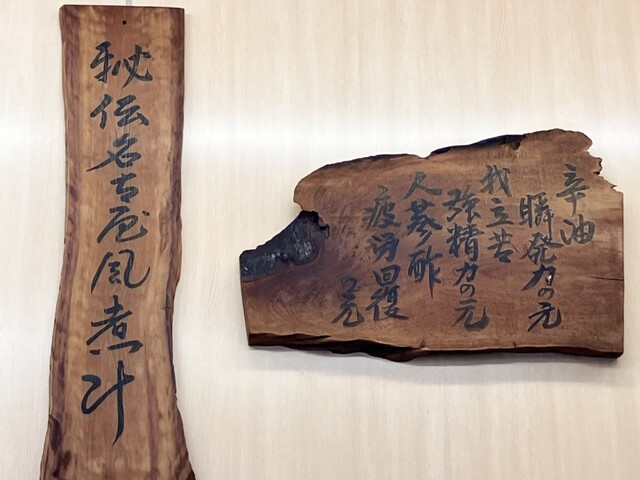 辛油
瞬発力の元
我立苦
強精力の元
人蔘酢
疲労回復
の元
秘伝名古屋風煮汁